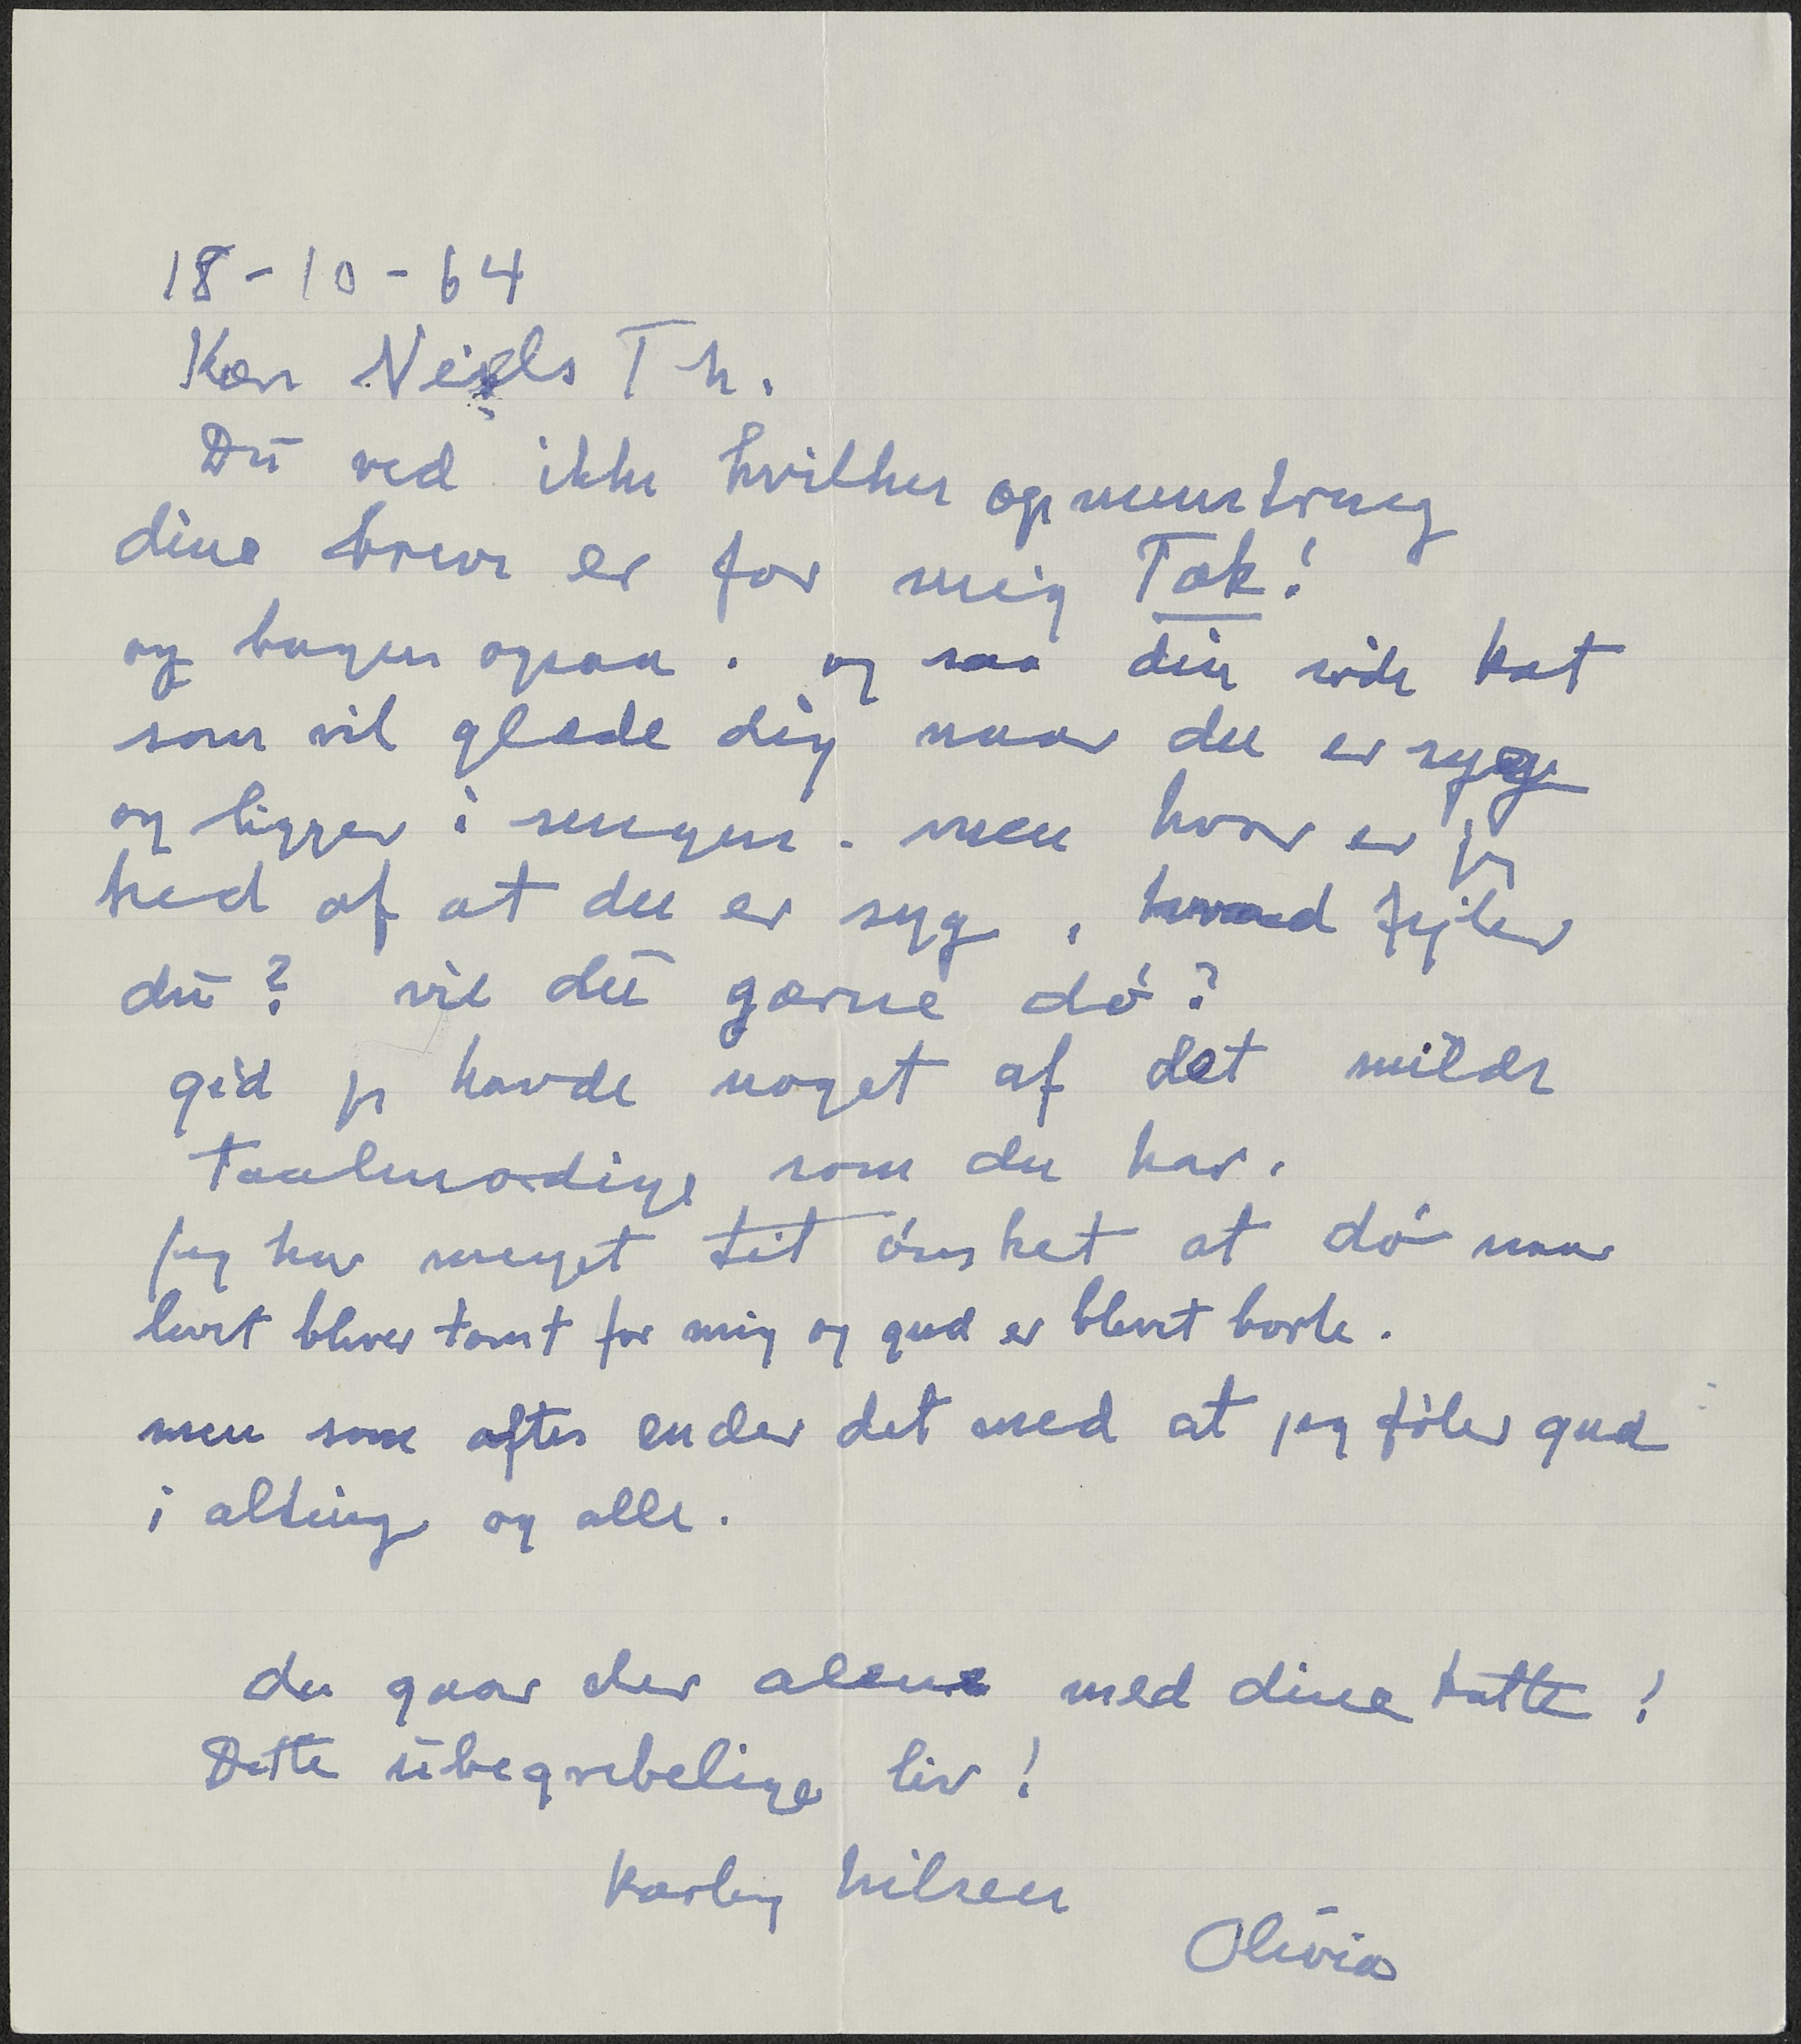 18-10-64
Kær Neiels Th.
Du ved ikke hvilken opmuntring
dine breve er for mig Tak!
og bogen ogsaa. og saa din søde kat
som vil glæde dig naar du er syg
og ligger i sengen. men hvor er jeg
ked af at du er syg, hvad fejler
du? vil du gærne dø?
gid jeg havde noget af det milde
taalmodige som du har.
jeg har meget tit ønsket at dø naar
livet bliver tomt for mig og gud er blevet borte.
men som oftes ender det med at jeg føler gud
i alting og alle.
du gaar der alene med dine katte!
Dette ubegribelige liv!
Kærlig hilsen
Olivia